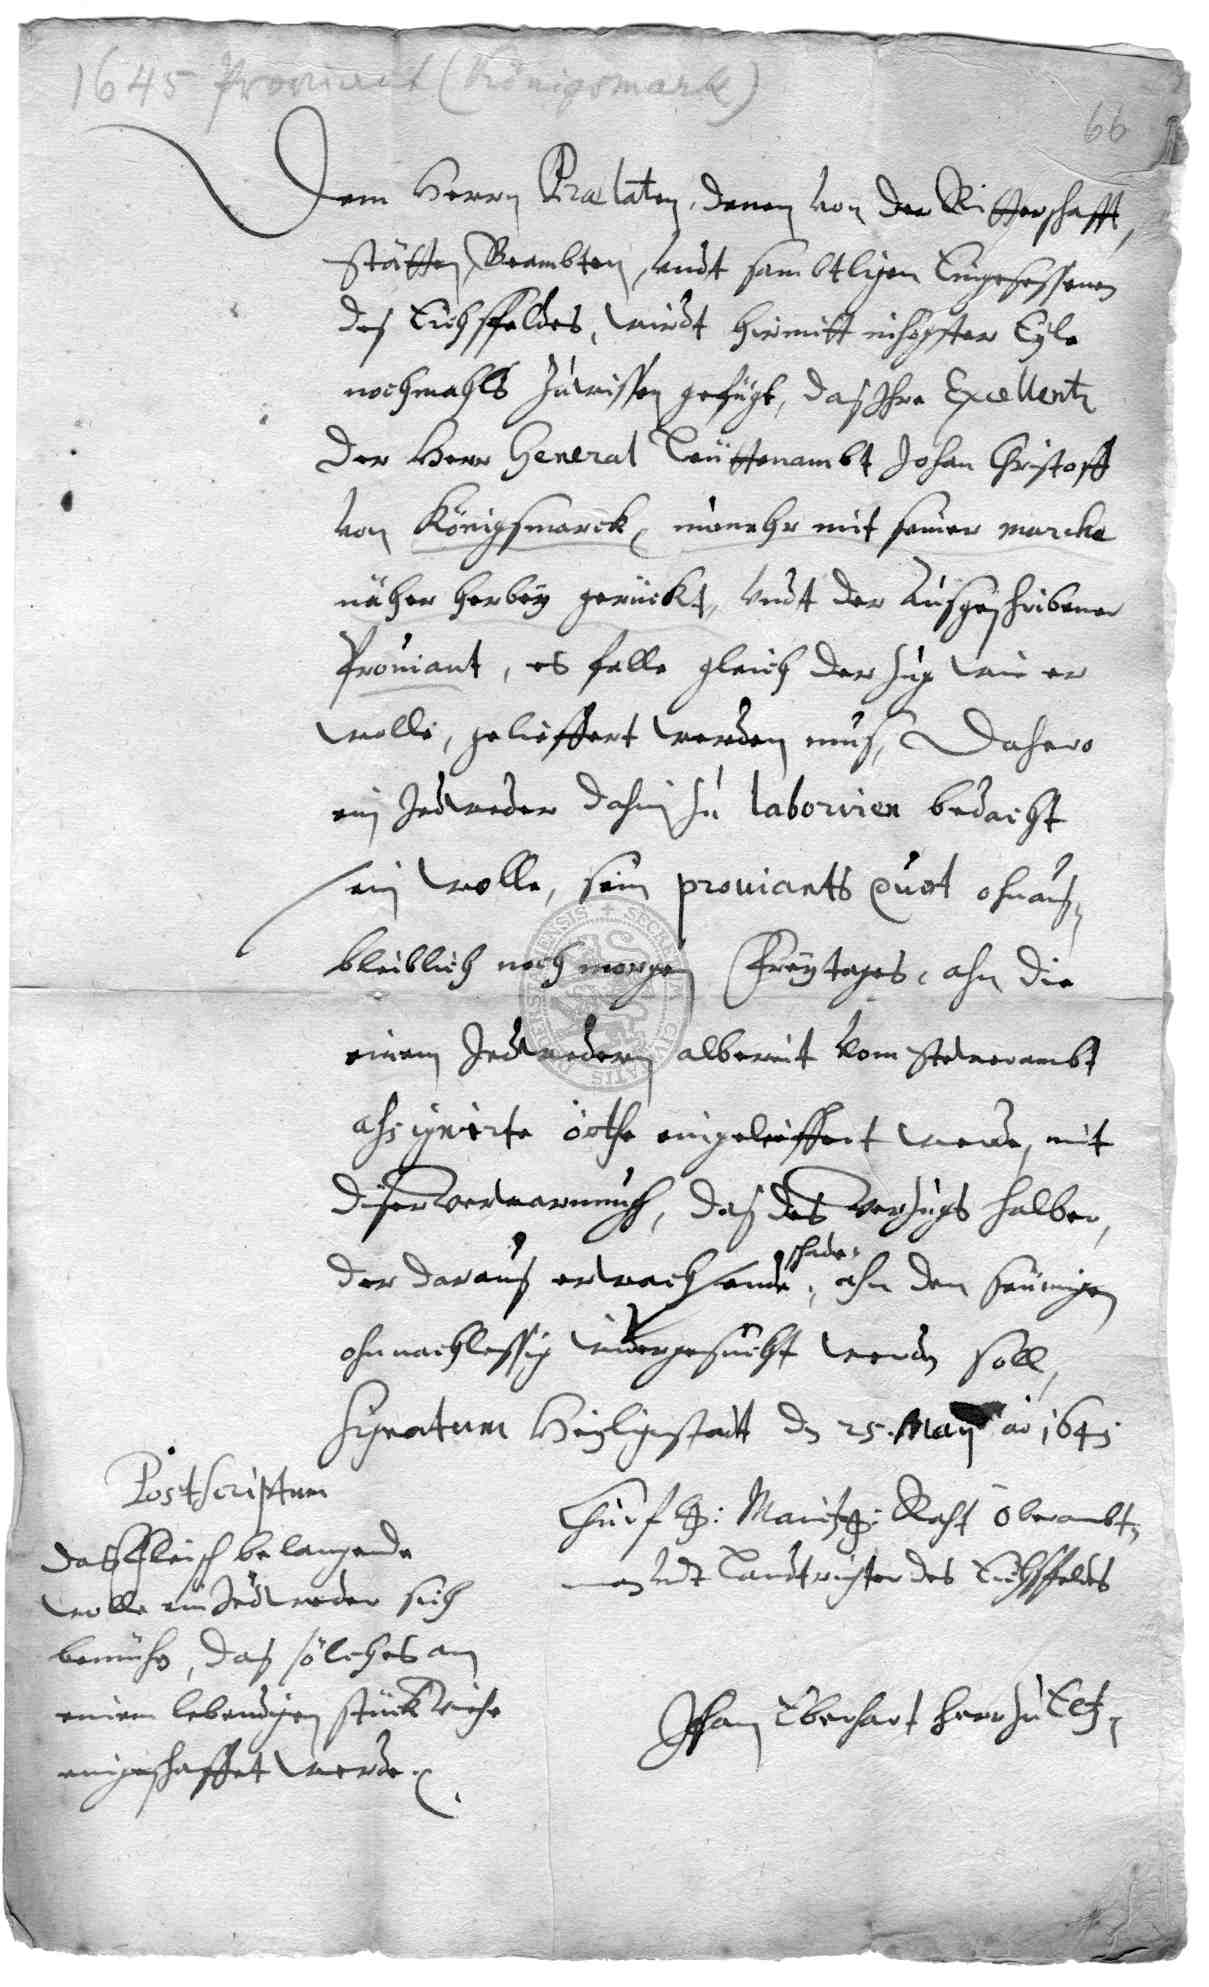 1645 Proviant (Königsmark)
66
Dem Herrn Prælaten, denen von der Ritterschafft,
Stätten, Beambten, undt sambtlichen Eingesessenen
des Eichsfeldes, wirdt hirmitt in höchster Eyle
nochmahls zuwissen gefügt, das Ihre Excellentz
der Herr General Leüttenambt Johan Christoff
von Königsmarck, nunmehr mit seiner marche
näher herbey gerückt, undt der ausgeschribener
Proviant, es falle gleich der zug wie er
wolle, gelieffert werden mus, Dahero
ein Jedweder dahin zu laboriren bedacht
sein wolle, sein proviants quot ohnaus-
bleiblich noch morgen Freytages, ahn die
einem Jedwedern albereit vom Steuerambt
assignirte örthe eingelieffert werde, mit
diser verwarnung, das des verzugs halber,
der daraus erwachsende schade, ahn den seumigen
ohnnachlessig widergesucht werden soll,
Signatum Heyligenstatt den 25. May ao 1645
Churf. G: Maintz: Raht Oberambt-
man undt Landtrichter des Eichsfeldes
Johan Eberhart herr zu Eltz
Postscriptum
das Fleisch belangende
wolle ein Jedweder sich
bemühen, das sölches an
einem lebendigen stück viehe
eingeschaffet werde.
SECRETA CIVITATIS